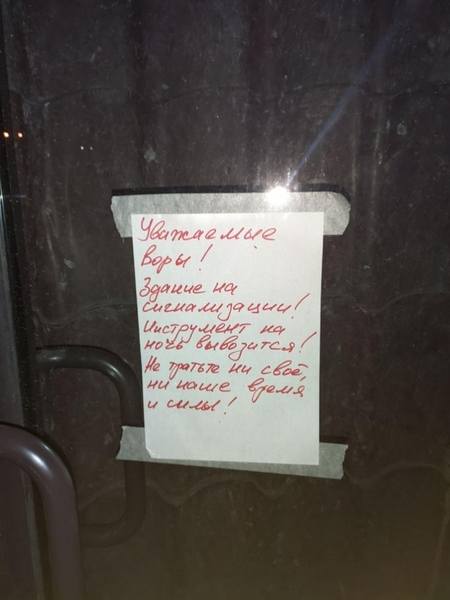 Уважаемые
воры!
Здание на
сигнализации!
Инструмент на
ночь вывозится!
Не тратьте ни своё,
ни наше время
и силы!